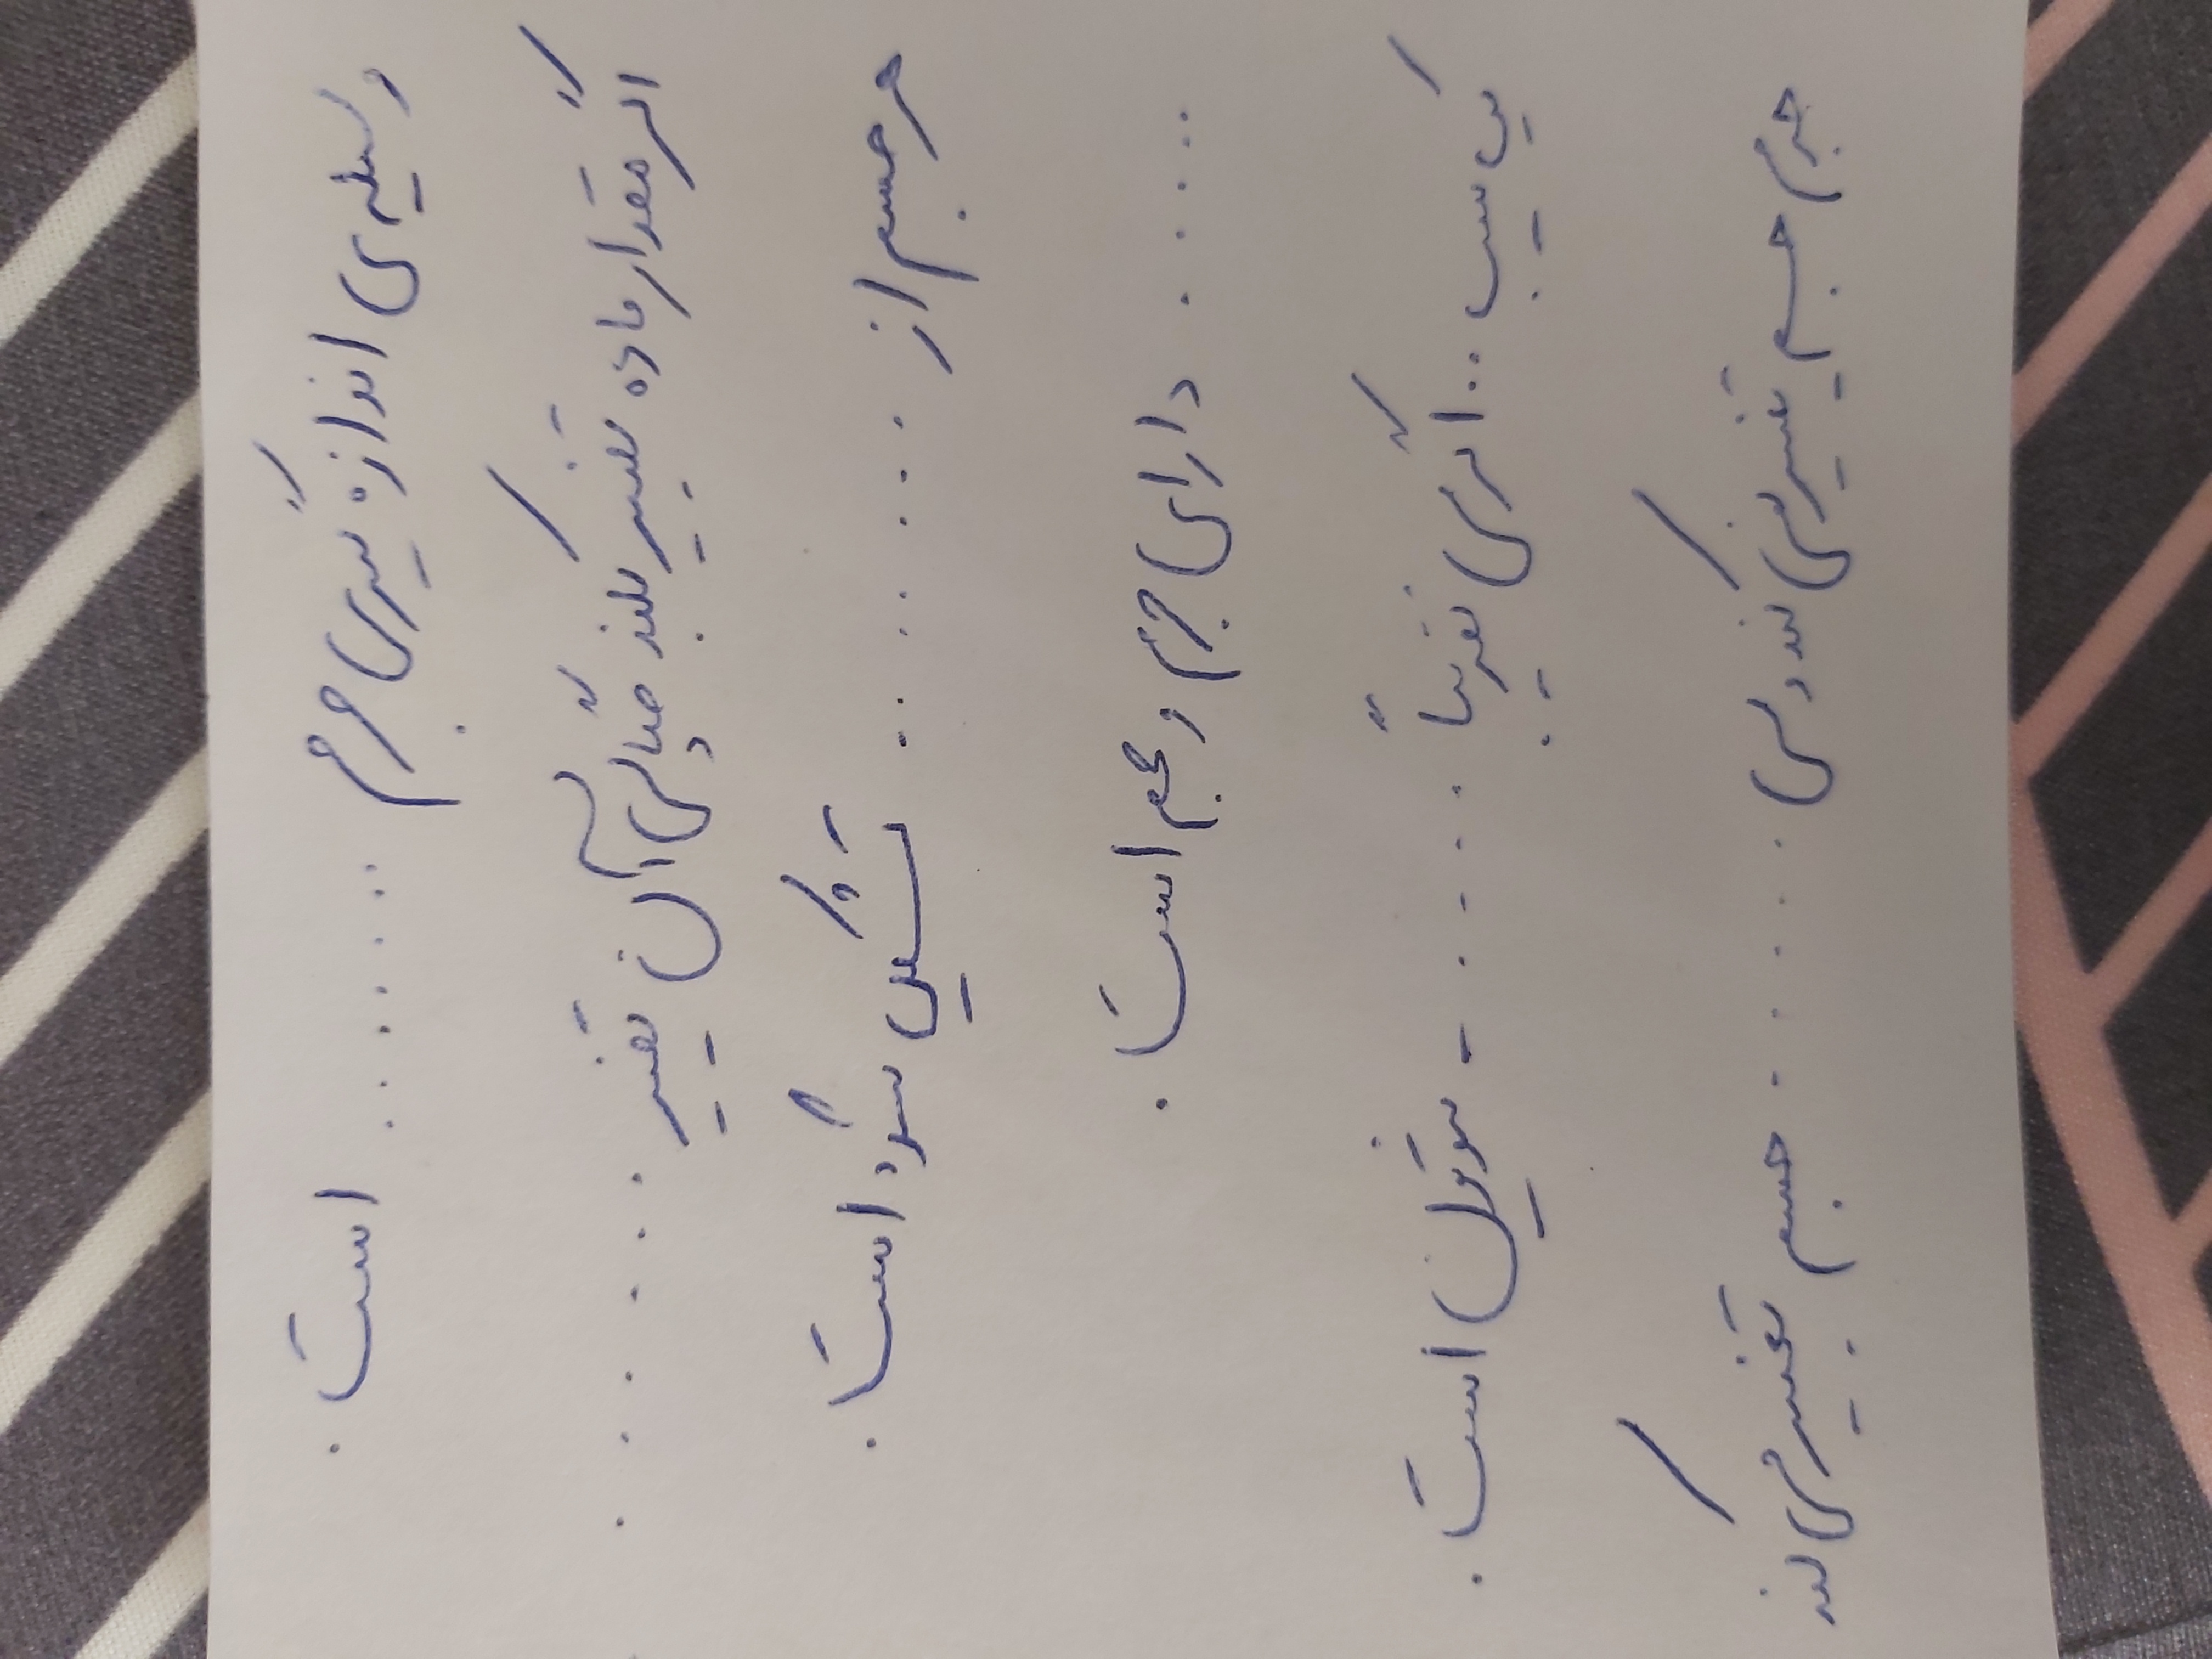 وسیله‌ی اندازه گیری جرم ........ است.
اگر مقدار ماده تغییر کند چگالی آن تغییر .......
هر جسم از ........ تشکیل شده است.
...... دارای جرم و حجم است.
یک سیب ۱۰۰ گرمی تقریباً ...... نیوتون است.
جرم جسم تغییر نمی کند ولی ...... جسم تغییر می کند